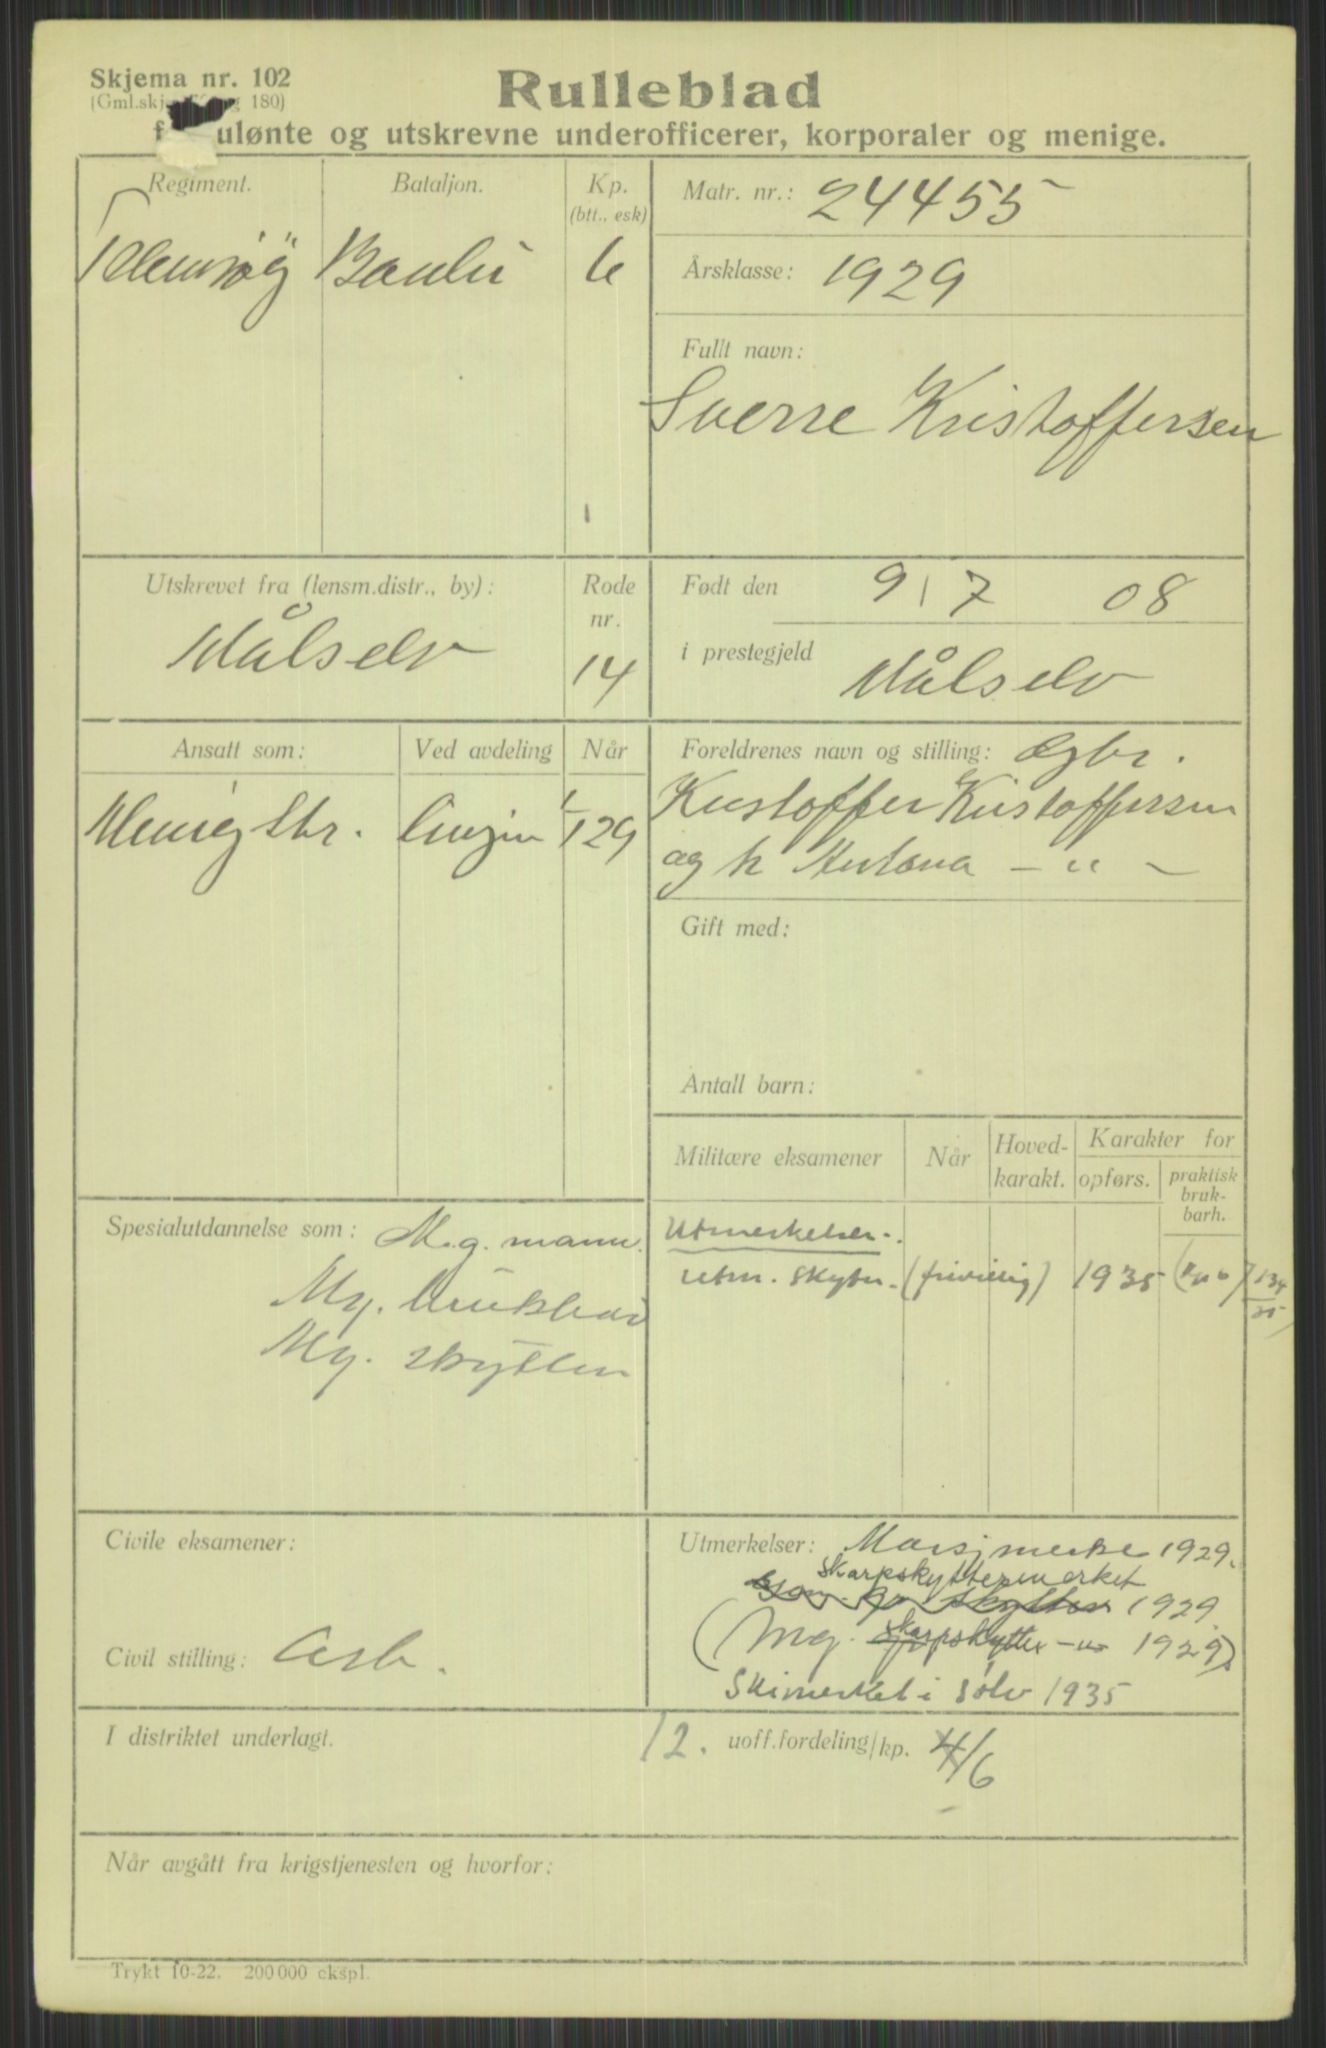 Skjema nr. 102
Rulleblad
ulønte og utskrevne underofficerer, korporaler og menige.
Regiment.
Bataljon.
Kp.
(btt., esk)
6
Matr. nr.: 24455
Årsklasse: 1929
Fullt navn:
Sverre Kristoffersen
Utskrevet fra (lensm.distr., by):
Målselv
Rode
nr.
14
Født den 9/7 08
i prestegjeld Målselv
Ansatt som:
Ved avdeling
Når
Menig
1/1 29
Foreldrenes navn og stilling: Gbr.
Kristoffer Kristoffersen
og h — " —
Gift med:
Antall barn:
Militære eksamener
Når
Hoved-
karakt.
Karakter for
opførs.
praktisk
bruk-
barh.
Utmerkelser.
Utm. skytter. (frivillig) 1935
Spesialutdannelse som: M.g. mann.
Mg.
Mg. skytter
Civile eksamener:
Civil stilling: Arb.
Utmerkelser: Marsjmerke 1929.
Skarpskyttermerket
1929
(Mg. skarpskytter —"— 1929)
Skimerket i sølv 1935
I distriktet underlagt.
12. uoff.fordeling/kp. 4/6
Når avgått fra krigstjenesten og hvorfor:
Trykt 10-22. 200 000 ekspl.